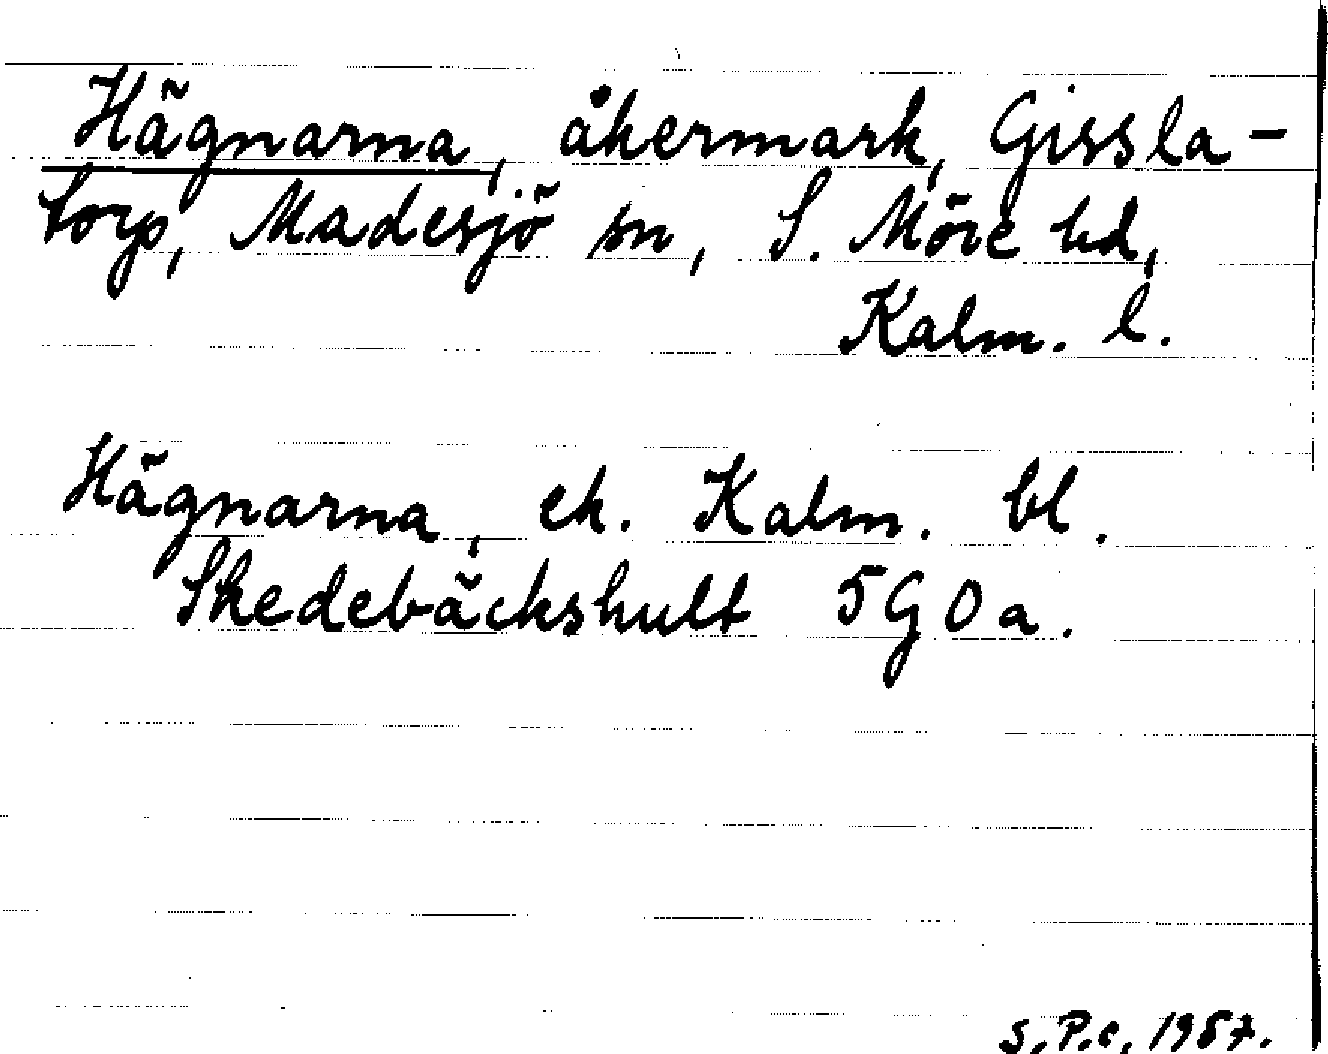 Hägnarna, åkermark, Gissla-
torp, Madesjö sn, S. Möre hd,
Kalm. l.
Hägnarna, ek. Kalm. bl.
Skedebäckshult 5G0a.
S.P.c. 1957.